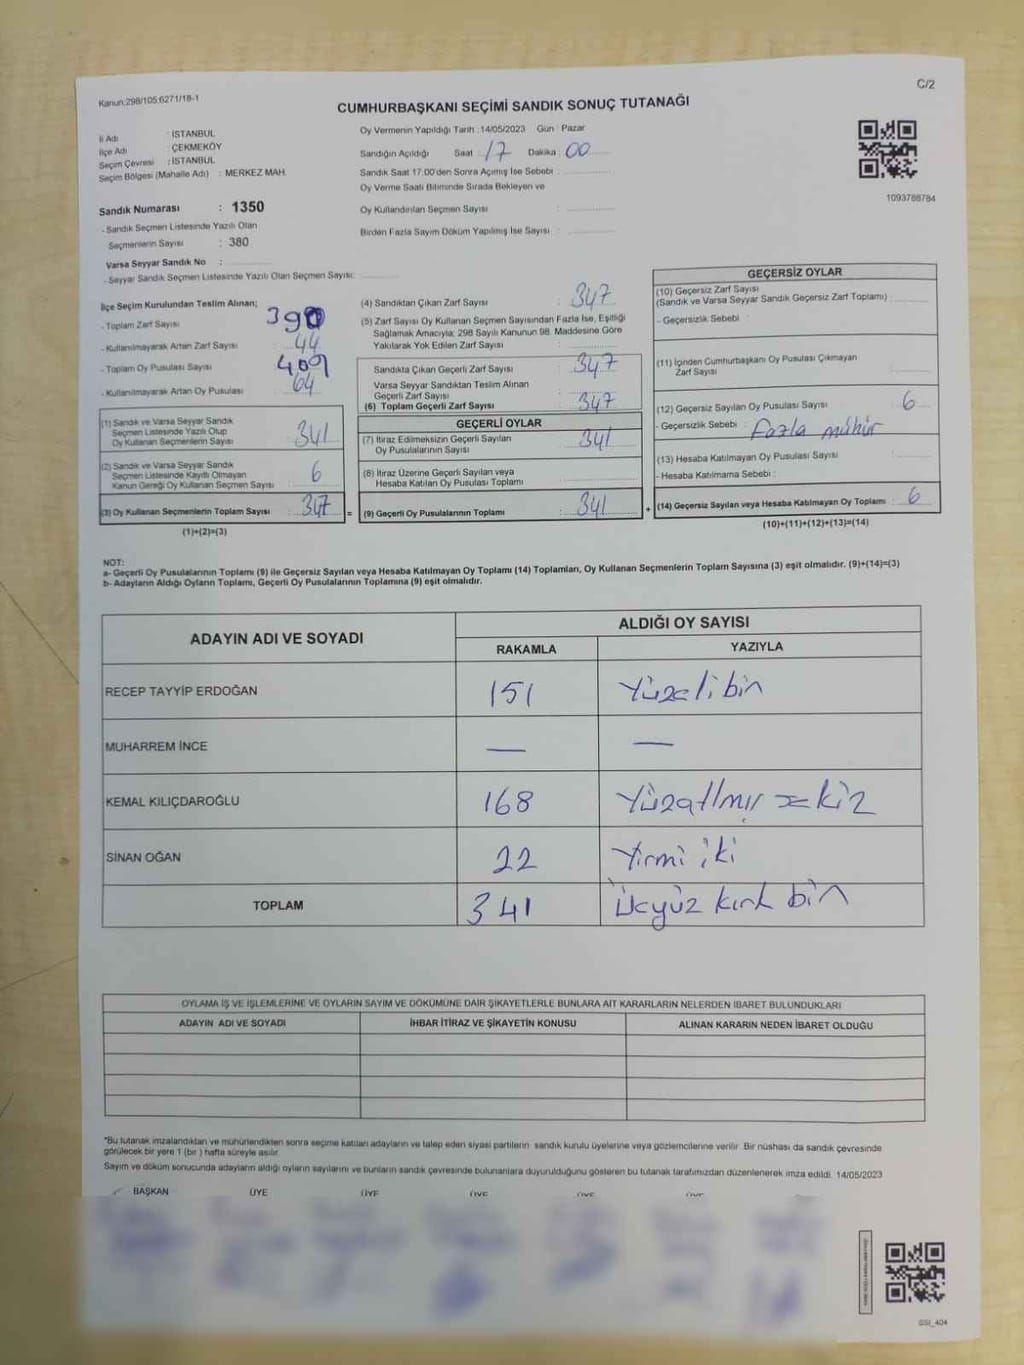 C/2
Kanun;298/105;6271/18-1
CUMHURBAŞKANI SEÇİMİ SANDIK SONUÇ TUTANAĞI
İl Adı : İSTANBUL
İlçe Adı : ÇEKMEKÖY
Seçim Çevresi : İSTANBUL
Seçim Bölgesi (Mahalle Adı) : MERKEZ MAH.
Sandık Numarası : 1350
- Sandık Seçmen Listesinde Yazılı Olan
Seçmenlerin Sayısı : 380
Varsa Seyyar Sandık No :
- Seyyar Sandık Seçmen Listesinde Yazılı Olan Seçmen Sayısı:
Oy Vermenin Yapıldığı Tarih :14/05/2023 Gün : Pazar
Sandığın Açıldığı Saat : 17 Dakika : 00
Sandık Saat 17.00'den Sonra Açımış İse Sebebi :
Oy Verme Saati Bitiminde Sırada Bekleyen ve
Oy Kullandırılan Seçmen Sayısı :
Birden Fazla Sayım Döküm Yapılmış İse Sayısı :
1093788784
İlçe Seçim Kurulundan Teslim Alınan;
- Toplam Zarf Sayısı : 390
- Kullanılmayarak Artan Zarf Sayısı : 44
- Toplam Oy Pusulası Sayısı : 409
- Kullanılmayarak Artan Oy Pusulası : 64
(1) Sandık ve Varsa Seyyar Sandık
Seçmen Listesinde Yazılı Olup
Oy Kullanan Seçmenlerin Sayısı : 341
(2) Sandık ve Varsa Seyyar Sandık
Seçmen Listesinde Kayıtlı Olmayan
Kanun Gereği Oy Kullanan Seçmen Sayısı : 6
(3) Oy Kullanan Seçmenlerin Toplam Sayısı : 347 =
(1)+(2)=(3)
(4) Sandıktan Çıkan Zarf Sayısı : 347
(5) Zarf Sayısı Oy Kullanan Seçmen Sayısından Fazla İse, Eşitliği
Sağlamak Amacıyla; 298 Sayılı Kanunun 98. Maddesine Göre
Yakılarak Yok Edilen Zarf Sayısı :
Sandıkta Çıkan Geçerli Zarf Sayısı : 347
Varsa Seyyar Sandıktan Teslim Alınan
Geçerli Zarf Sayısı :
(6) Toplam Geçerli Zarf Sayısı : 347
GEÇERLİ OYLAR
(7) İtiraz Edilmeksizin Geçerli Sayılan
Oy Pusulalarının Sayısı : 341
(8) İtiraz Üzerine Geçerli Sayılan veya
Hesaba Katılan Oy Pusulası Toplamı :
(9) Geçerli Oy Pusulalarının Toplamı : 341 +
GEÇERSİZ OYLAR
(10) Geçersiz Zarf Sayısı
(Sandık ve Varsa Seyyar Sandık Geçersiz Zarf Toplamı) :
- Geçersizlik Sebebi :
(11) İçinden Cumhurbaşkanı Oy Pusulası Çıkmayan
Zarf Sayısı :
(12) Geçersiz Sayılan Oy Pusulası Sayısı : 6
- Geçersizlik Sebebi : Fazla mühür
(13) Hesaba Katılmayan Oy Pusulası Sayısı :
- Hesaba Katılmama Sebebi :
(14) Geçersiz Sayılan veya Hesaba Katılmayan Oy Toplamı : 6
(10)+(11)+(12)+(13)=(14)
NOT:
a- Geçerli Oy Pusulalarının Toplamı (9) ile Geçersiz Sayılan veya Hesaba Katılmayan Oy Toplamı (14) Toplamları, Oy Kullanan Seçmenlerin Toplam Sayısına (3) eşit olmalıdır. (9)+(14)=(3)
b- Adayların Aldığı Oyların Toplamı, Geçerli Oy Pusulalarının Toplamına (9) eşit olmalıdır.
ADAYIN ADI VE SOYADI
ALDIĞI OY SAYISI
RAKAMLA YAZIYLA
RECEP TAYYİP ERDOĞAN 151 Yüzelibin
MUHARREM İNCE — —
KEMAL KILIÇDAROĞLU 168 Yüzatlmış sekiz
SİNAN OĞAN 22 Yirmi iki
TOPLAM 341 Üçyüz kırk bin
OYLAMA İŞ VE İŞLEMLERİNE VE OYLARIN SAYIM VE DÖKÜMÜNE DAİR ŞİKAYETLERLE BUNLARA AİT KARARLARIN NELERDEN İBARET BULUNDUKLARI
ADAYIN ADI VE SOYADI İHBAR İTİRAZ VE ŞİKAYETİN KONUSU ALINAN KARARIN NEDEN İBARET OLDUĞU
*Bu tutanak imzalandıktan ve mühürlendikten sonra seçime katılan adayların ve talep eden siyasi partilerin sandık kurulu üyelerine veya gözlemcilerine verilir. Bir nüshası da sandık çevresinde
görülecek bir yere 1 (bir ) hafta süreyle asılır.
Sayım ve döküm sonucunda adayların aldığı oyların sayılarını ve bunların sandık çevresinde bulunanlara duyurulduğunu gösteren bu tutanak tarafımızdan düzenlenerek imza edildi. 14/05/2023
BAŞKAN ÜYE ÜYE ÜYE ÜYE ÜYE
SSI_404